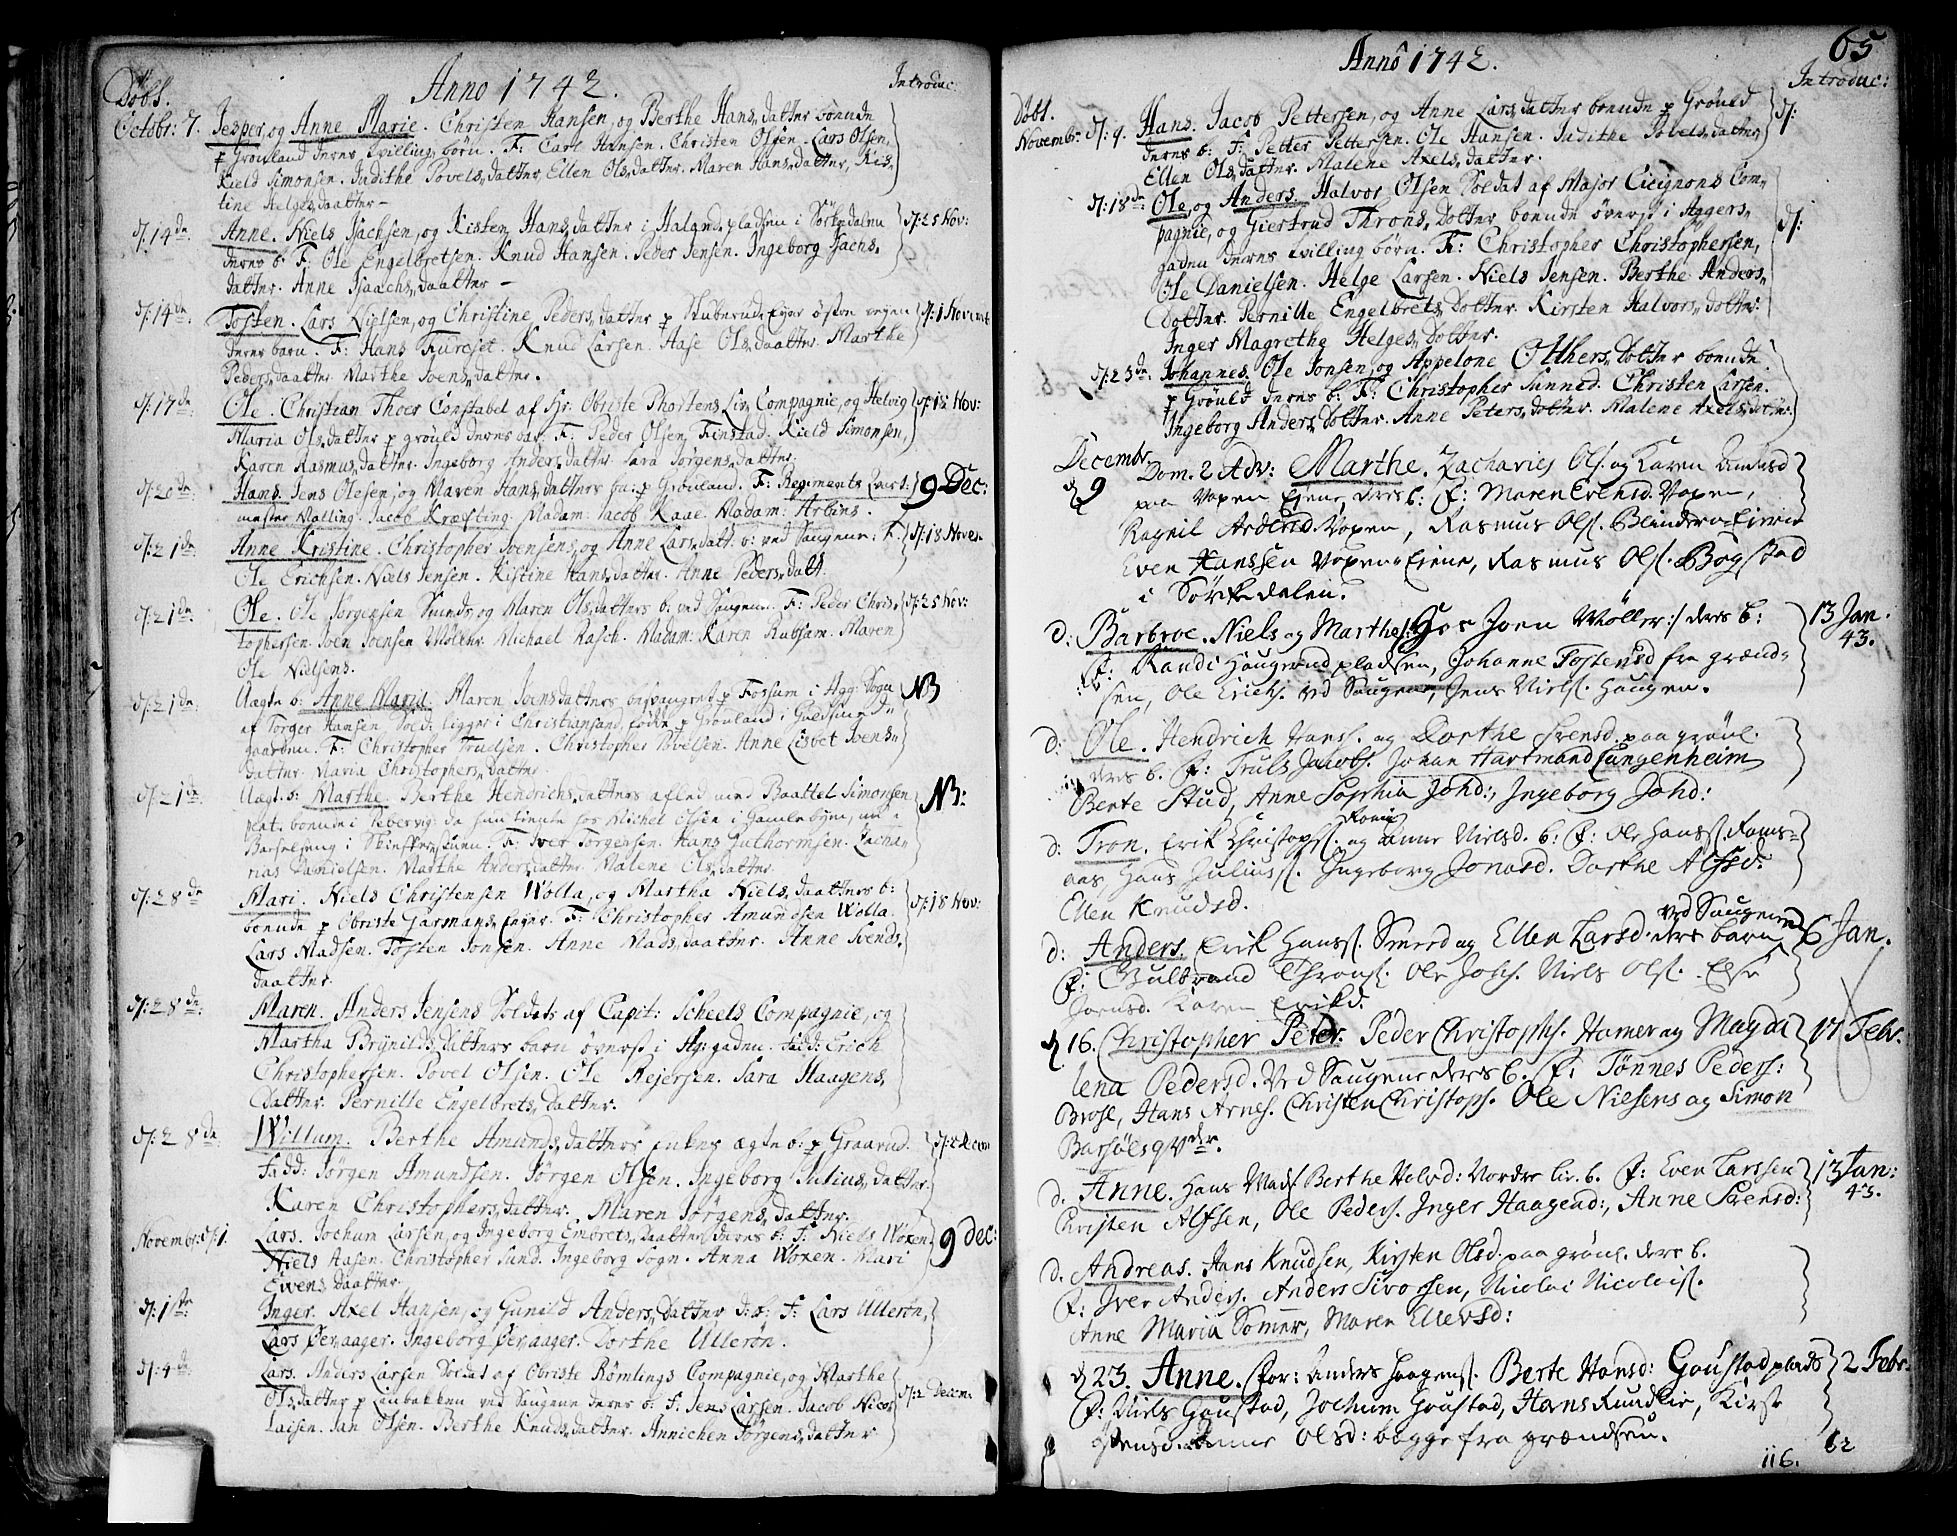 Döbt.
Anno 1742.
Introduc:
Octobr: 7. Jesper, og Anne Marie. Christen Hansen, og Berthe Hans,datter boende
p Grønland deres tvilling,børn. F: Carl Hansen. Christen Olsen. Lars Olsen.
Kield Simonsen. Judithe Povels,datter. Ellen Ols,datter. Maren Hans,datter, Kis,
tine Helges,daatter.
d: 14de. Anne. Niels Isachsen, og Kisten Hans,datter i pladsen i Sörkedalen d: 25 Nov:
deres b: F: Ole Engelbretsen. Knud Hansen. Peder Jensen. Ingeborg Isachs,
datter. Anne Isaachs,daatter
d: 14de. Tosten. Lars Nielsen, og Christine Peders,datter p Stuberud Ejer östen vejen d: 1 Novembr
deres barn. F: Hans Fureset. Knud Larsen. Aase Ols,daatter. Marthe
Peders,daatter. Marthe Joens,datter.
d: 17de Ole. Christian Thoer Constabel af Hr: Obriste Mortens Liv Compagnie, og Helvig d: 18 Nov:
Maria Ols,datter p grönld deres bar. F: Peder Olsen, Finstad. Kield Simonsen,
Karen Rasmus,datter. Ingeborg Anders,datter. Sara Jörgens,datter.
d: 20de Hans. Jens Olesen, og Maren Hans,datters ba: p Grönland. F: Regiments Qvart: 9 Dec:
mester Malling. Jacob Kræfting. Madam: Jacob Kaae. Madam: Arbins.
d: 21de Anne Kristine. Christopher Joensens, og Anne Lars,datt: b: ved Saugene: F. d: 18 Novem
Ole Erichsen. Niels Jensen. Kistine Hans,datter. Anne Peders,datt.
d: 21de Ole. Ole Jörgensen Smeds, og Maren Ols,datters b: ved Saugene. F: Peder Chris, d: 25 Nov:
tophersen. Joen Joensen Möller. Michael Rasch. Madam: Karen Rubsam. Maren
Ole Nielsens.
d: 21de Uægte b: Anne Maria. Maren Joensdatters besvangret p Fossum i Agg: Sogn NB
af Torger Hansen Sold: ligger i Christiansand, födde p Grönland i Guldsmed
gaarden. F: Christopher Truelsen. Christopher Povelsen. Anne Lisbet Svends
datter. Maria Christophers,datter.
d: 21de Uægt: b: Marthe. Berthe Hendrichs,datters afled med Baattel Simonsen NB:
boende i Pebervig: da hun tiente for Michel Olsen i Gamlebyen, nu i
Barselseng i F: Iver Torgersen. Hans Guthormsen. Zacha,
rias Danielsen. Marthe Anders,datter. Malene Ols,datter.
d: 28de Mari. Niels Christensen Wolla, og Martha Niels,daatters b: d: 18 Nov:
boende p Obriste Garmans, Ejer. F: Christopher Amundsen Wolla.
Lars Madsen. Tosten Jonsen. Anne Mads,daatter. Anne Svends,
daatter.
d: 28de: Maren. Anders Jensens Soldats af Capit: Scheels Compagnie, og
Martha Brynilds,datters barn överst i Ag: gaden. Fadd: Erich
Christophersen. Povel Olsen. Ole Rejersen. Sara Haagens,
datter. Pernille Engelbrets,datter.
d: 28de Willum. Berthe Amunds,datters enkes ægte b: p Graarud. d: 2 Decem
Fadd: Jörgen Amundsen. Jörgen Olsen. Ingeborg Julius,datter.
Karen Christophers,datter. Maren Jörgens,datter.
Novembr: d: 1. Lars. Jochum Larsen, og Ingeborg Embrets,daatter deres b: F: Niels Woxen. 9 Dec:
Niels Aasen. Christopher Lund. Ingeborg Sogn. Anna Woxen. Mari
Evens,daatter.
d: 1ste Inger. Axel Hansen, og Gunild Anders,datter d: b: F: Lars Ulleren,
Lars Persaager. Ingeborg Persaager. Dorthe Ulleren.
d: 4de Lars. Anders Larsen Soldat af Obriste Römlings Compagnie, og Marthe
Ols,datter p Linbakken ved Saugene deres b: F: Jens Larsen. Jacob Nico, d: 2 Decem
laisen. Jan Olsen. Berthe Knuds,datter. Annichen Jörgens,datter
65
Anno 1742.
Introduc:
Döbt.
Novembr: d: 4. Hans. Jacob Pettersen, og Anne Lars,datter boende p Grönld d:
deres b: F: Petter Pettersen. Ole Hansen. Judithe Povels,datter,
Ellen Ols,datter. Malene Axels,datter.
d: 18de: Ole, og Anders. Halvor Olsen Soldat af Major Cicignons Com,
pagnie, og Giertrud Throns,dotter boende överst i Aggers, d:
gaden deres tvilling börn. F: Christopher Christophersen,
Ole Danielsen. Helge Larsen. Niels Jensen. Berthe Anders,
dotter. Pernille Engelbrets,dotter. Kirsten Halvors,dotter.
Inger Magrethe Helges,dotter.
d: 25de. Johannes. Ole Jonsen, og Appelone Otthers,dotter boende
p Grönld deres b: F: Christopher Sinned. Christen Larsen.
Ingeborg Anders,dotter. Anne Peters,dotter. Malene Axels,datter.
Decembr. Dom. 2 Adv: Marthe. Zacharies Ols: og Karen Amensd
d 9 paa Voxen Ejene, deres b: F: Maren Evensd. Voxen,
Ragnil Voxen, Rasmus Ols. Blindern Ejeren
Even Hanssen Voxen Ejene, Rasmus Ols. Bogstad
i Sörkedalen.
d: Barbroe. Niels og Marthe /: Hos Joen Möller :/ deres b: 13 Jan.
43.
F: Randi Haugerud pladsen, Johanne Tostensd fra grænd,
sen, Ole Erichs. ved Saugene, Jens Niels. Haugen.
d: Ole. Hendrich Hanss. og Dorthe Svensd. paa grönl.
deres b. F: Truls Jacobs. Johan Hartmand Langenheim
Berte Stud, Anne Sophia Johd:, Ingeborg Johd:
d: Tron. Erik Christophs. og Anne Nielsd. b: F: Ole Hanss. Roms,
aas Hans Juliuss. Ingeborg Jonasd. Dorthe Alfsd.
Ellen Knudsd.
d: Anders. Erik Hanss. Smed og Ellen Larsd. deres barn ved Saugene 6 Jan.
F: Gulbrand Throns. Ole Johs. Niels Ols. Else
Joensd. Karen Eriksd.
d 16. Christopher Peter. Peder Christophs. Hamer og Magda 17 Febr.
lena Pedersd. Ved Saugene deres b. F: Tönnes Peders:
Brose, Hans Arnes. Christen Christophs. Ole Nielsens og Simon
Barföls qvder.
d. Anne. Hans Mads Berthe Nelsd: Nordre lie. b. F: Even Larssen 13 Jan:
43.
Christen Alfsen, Ole Peders. Inger Haagend:, Anne Svensd:
d. Andreas. Hans Knudsen, Kirsten Olsd. paa grönl. deres b.
F: Iver Anders. Anders Sivorsen, Nicolai Nicolais.
Anne Maria Sommer, Maren Ellevsd:
d 23. Anne. For: Anders Haagens. Berte Hansd: Goustad plads 2 Febr.
F: Niels Goustad, Jochum Goustad, Hans Rundlie, Kirst
Anne Olsd: begge fra grændsen.
116. 62